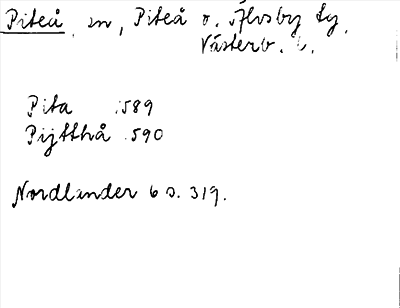 Piteå m, Piteå o. Älvsby ty,
Västerb. l.
Pita 1589
Pijtthå 1590
Nordlander 6 s. 319.